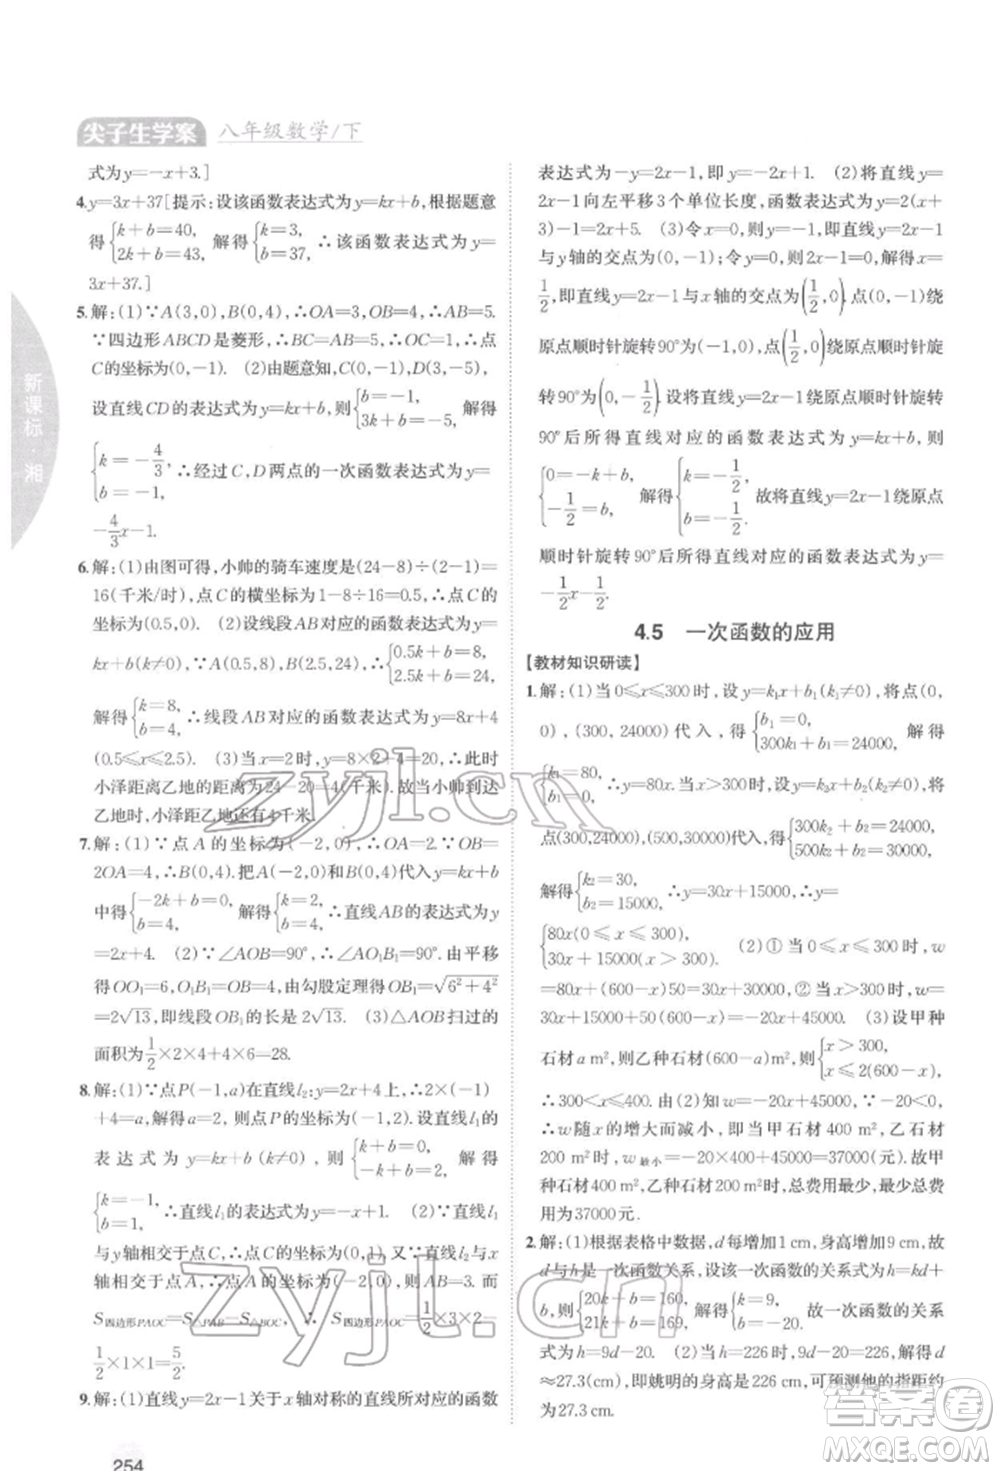 尖子生学案 八年级数学/下
新课标·湘
式为y=-x+3.]
4.y=3x+37[提示：设该函数表达式为y=kx+b,根据题意
得{k+b=40, 2k+b=43, 解得{k=3, b=37, ∴该函数表达式为y=
3x+37.]
5.解:(1)∵A(3,0),B(0,4),∴OA=3,OB=4,∴AB=5.
∵四边形ABCD是菱形,∴BC=AB=5,∴OC=1,∴点
C的坐标为(0,-1). (2)由题意知,CD=5,D(3,-5),
设直线CD的表达式为y=kx+b,则{b=-1, 3k+b=-5, 解得
{k=-4/3, b=-1, ∴经过C,D两点的一次函数表达式为y=
-4/3x-1.
6.解:(1)由图可得,小帅的骑车速度是(24-8)÷(2-1)=
16(千米/时),点C的横坐标为1-8÷16=0.5,∴点C的坐标为
(0.5,0). (2)设线段AB对应的函数表达式为y=
kx+b(k≠0),∵A(0.5,8),B(2.5,24),∴{0.5k+b=8, 2.5k+b=24,
解得{k=8, b=4, ∴线段AB对应的函数表达式为y=8x+4
(0.5≤x≤2.5). (3)当x=2时,y=8×2+4=20,∴此时
小泽距离乙地的距离为24-20=4(千米).∴当小帅到达
乙地时,小泽距乙地还有4千米.
7.解:(1)∵点A的坐标为(-2,0),∴OA=2.∵OB=
2OA=4,∴B(0,4).把A(-2,0)和B(0,4)代入y=kx+b
中得{-2k+b=0, b=4, 解得{k=2, b=4, ∴直线AB的表达式为y
=2x+4. (2)∵∠AOB=90°,∴∠AOB₁=90°.由平移
得OO₁=6,O₁B₁=OB=4,由勾股定理得OB₁=√(6²+4²)
=2√13,即线段OB₁的长是2√13. (3)△AOB扫过的
面积为1/2×2×4+4×6=28.
8.解:(1)∵点P(-1,a)在直线l₂:y=2x+4上,∴2×(-1)
+4=a,解得a=2,则点P的坐标为(-1,2).设直线l₁
的表达式为y=kx+b(k≠0),则{k+b=0, -k+b=2, 解得
{k=-1, b=1, ∴直线l₁的表达式为y=-x+1. (2)∵直线l₁
与y轴相交于点C,∴点C的坐标为(0,1).又∵直线l₂
与x轴相交于点A,∴点A的坐标为(-2,0),则AB=3,
∵S四边形PAOC=S△PAB-S△BOC,∴S四边形PAOC=1/2×3×2-
1/2×1×1=5/2.
9.解:(1)直线y=2x-1关于x轴对称的直线所对应的函数
254
表达式为-y=2x-1,即y=-2x+1. (2)将直线y=
2x-1向左平移3个单位长度,函数表达式为y=2(x+
3)-1=2x+5. (3)令x=0,解得y=-1,即直线y=2x-1
与y轴的交点为(0,-1);令y=0,即2x-1=0,解得x=
1/2,即直线y=2x-1与x轴的交点为(1/2,0).点(0,-1)绕
原点顺时针旋转90°后的对应点为(-1,0),点(1/2,0)绕原点顺时针旋
转90°为(0,-1/2).设直线y=2x-1绕原点顺时针旋转
90°后所得直线对应的函数表达式为y=kx+b,则
{0=-k+b, -1/2=b, 解得{k=-1/2, b=-1/2, 故将直线y=2x-1绕原点
顺时针旋转90°后所得直线对应的函数表达式为y=
-1/2x-1/2.
4.5 一次函数的应用
【教材知识研读】
1.解:(1)当0≤x≤300时,设y=k₁x+b₁(k₁≠0),将点(0,
0),(300,24000)代入,得{b₁=0, 300k₁+b₁=24000, 解得
{k₁=80, b₁=0, ∴y=80x.当x>300时,设y=k₂x+b₂(k₂≠0),将
点(300,24000),(500,30000)代入,得{300k₂+b₂=24000, 500k₂+b₂=30000,
解得{k₂=30, b₂=15000, ∴y=30x+15000,∴y=
{80x(0≤x≤300), 30x+15000(x>300). (2)①当0≤x≤300时,w
=80x+50(600-x)=30x+30000,②当x>300时,w=
30x+15000+50(600-x)=-20x+45000. (3)设甲种
石材a m²,则乙种石材(600-a)m²,∴{x>300, x≤2(600-x),
∴300<x≤400.由(2)知w=-20x+45000,∵-20<0,
∴w随x的增大而减小,即当甲石材400 m²,乙石材
200 m²时,w最小=-20×400+45000=37000(元).故甲
种石材400 m²,乙种石材200 m²时,总费用最少,最少费用
为37000元.
2.解:(1)根据表格中数据,d每增加1 cm,身高增加9 cm,故
d与h是一次函数关系,设这个一次函数的关系式为h=kd+
b,则{20k+b=160, 21k+b=169, 解得{k=9, b=-20, 故一次函数的关系
式为h=9d-20. (2)当h=226时,9d-20=226,解得d
≈27.3(cm),即姚明的身高是226 cm,可预测他的指距约
为27.3 cm.
zyjl.cn
zyjl.cn
答案圈
MXQE.COM